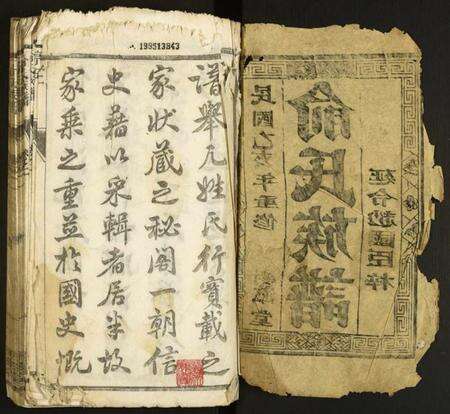 199513843
譜舉凡姓氏行實載之
家状藏之秘閣一朝信
史藉以采輯者居半故
家乘之重並於國史慨
民國乙亥年重修
俞氏族譜
堂